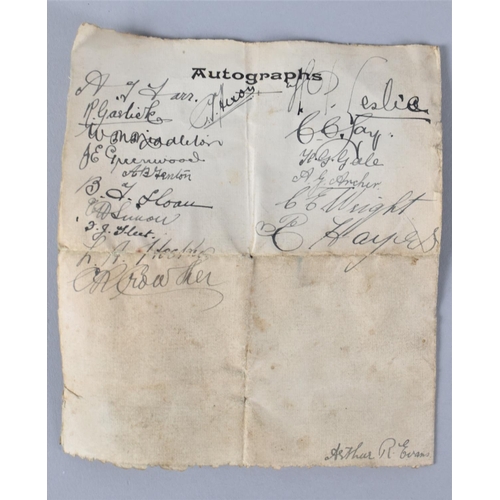 Autographs
A J Farr.
R. Garlick
W M Middleton
J E Greenwood
A B Fenton
B. J. Sloan
J. J. Fleet.
E R Crowther
Leslie
C E Fay.
H. G. Gale
A. G. Archer
C E Wright
E Hayes
Arthur R Evans